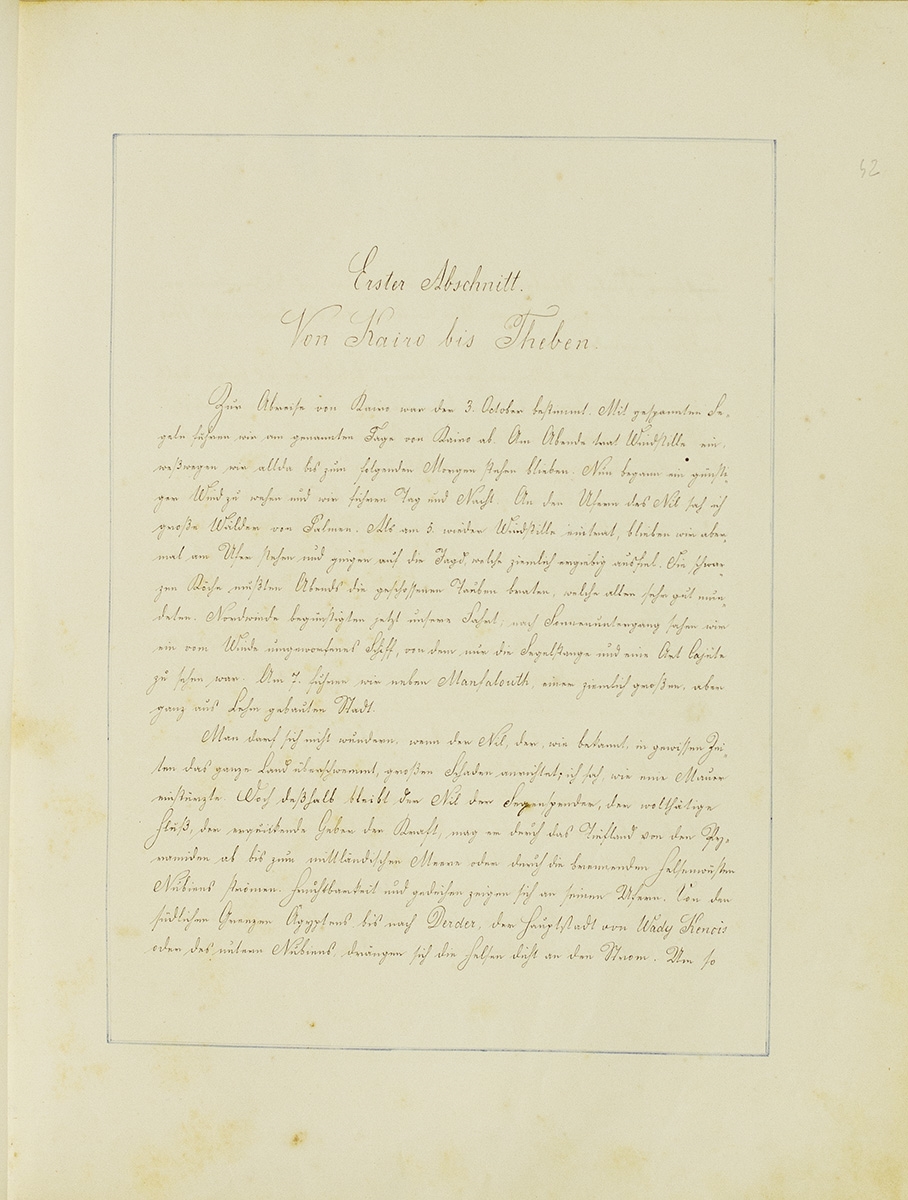 52
Erster Abschnitt.
Von Kairo bis Theben.
Zur Abreise von Kairo war der 3. October bestimmt. Mit gespannten Se-
geln fuhren wir am genannten Tage von Kairo ab. Am Abende trat Windstille ein,
weßwegen wir allda bis zum folgenden Morgen stehen blieben. Nun begann ein günsti-
ger Wind zu wehen und wir fuhren Tag und Nacht. An den Ufern des Nil sah ich
große Wälder von Palmen. Als am 5. wieder Windstille eintrat, blieben wir aber-
mal am Ufer stehen und giengen auf die Jagd, welche ziemlich ergiebig ausfiel. Die schwar-
zen Köche mußten Abends die geschossenen Tauben braten, welche allen sehr gut mun-
deten. Nordwinde begünstigten jetzt unsere Fahrt; nach Sonnenuntergang sahen wir
ein vom Winde umgeworfenes Schiff, von dem nur die Segelstange und eine Art Cajüte
zu sehen war. Am 7. fuhren wir neben Manfalouth, einer ziemlich großen, aber
ganz aus Lehm gebauten Stadt.
Man darf sich nicht wundern, wenn der Nil, der, wie bekannt, in gewissen Zei-
ten das ganze Land überschwemmt, großen Schaden anrichtet; ich sah, wie eine Mauer
einstürzte. Doch deßhalb bleibt der Nil der Segenspender, der wolthätige
Fluß, der erquickende Geber der Kraft, mag er durch das Tiefland von den Py-
ramiden ab bis zum mittländischen Meere oder durch die brennenden Felsenwüsten
Nubiens strömen. Fruchtbarkeit und gedeihen zeigen sich an seinen Ufern. Von den
südlichen Grenzen Ägyptens bis nach Derder, der Hauptstadt von Wady Kencis
oder des untern Nubiens, drängen sich die Felsen dicht an den Strom. Um so